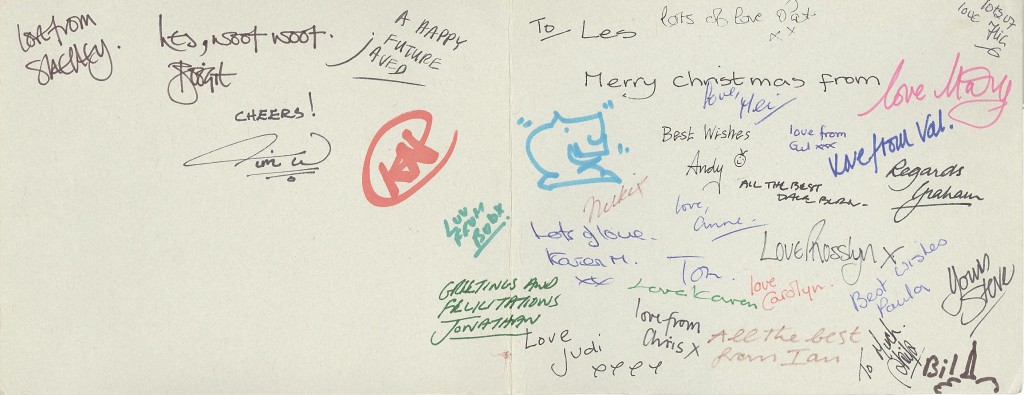 love from
Les, woot woot.
A HAPPY
FUTURE
JAVED
CHEERS!
Tim W
LUV
FROM
BOB X
GREETINGS AND
FELICITATIONS
JONATHAN
To Les
lots of love Pat
xx
lots of
love
Merry christmas from
love Mary
love,
Mei
Best Wishes
Andy
love from
Gul xxx
Love from Val.
Regards
Graham
ALL THE BEST
DAVE BURN.
Nikki x
love,
Anne.
Lots of love.
Karen M.
xx
Tom.
Love Rosslyn X
Best wishes
Paula
Yours
Steve
love
Carolyn.
Love Karen
love from
Chris X
All the best
from Ian
Love
Judi
To Much
Bill